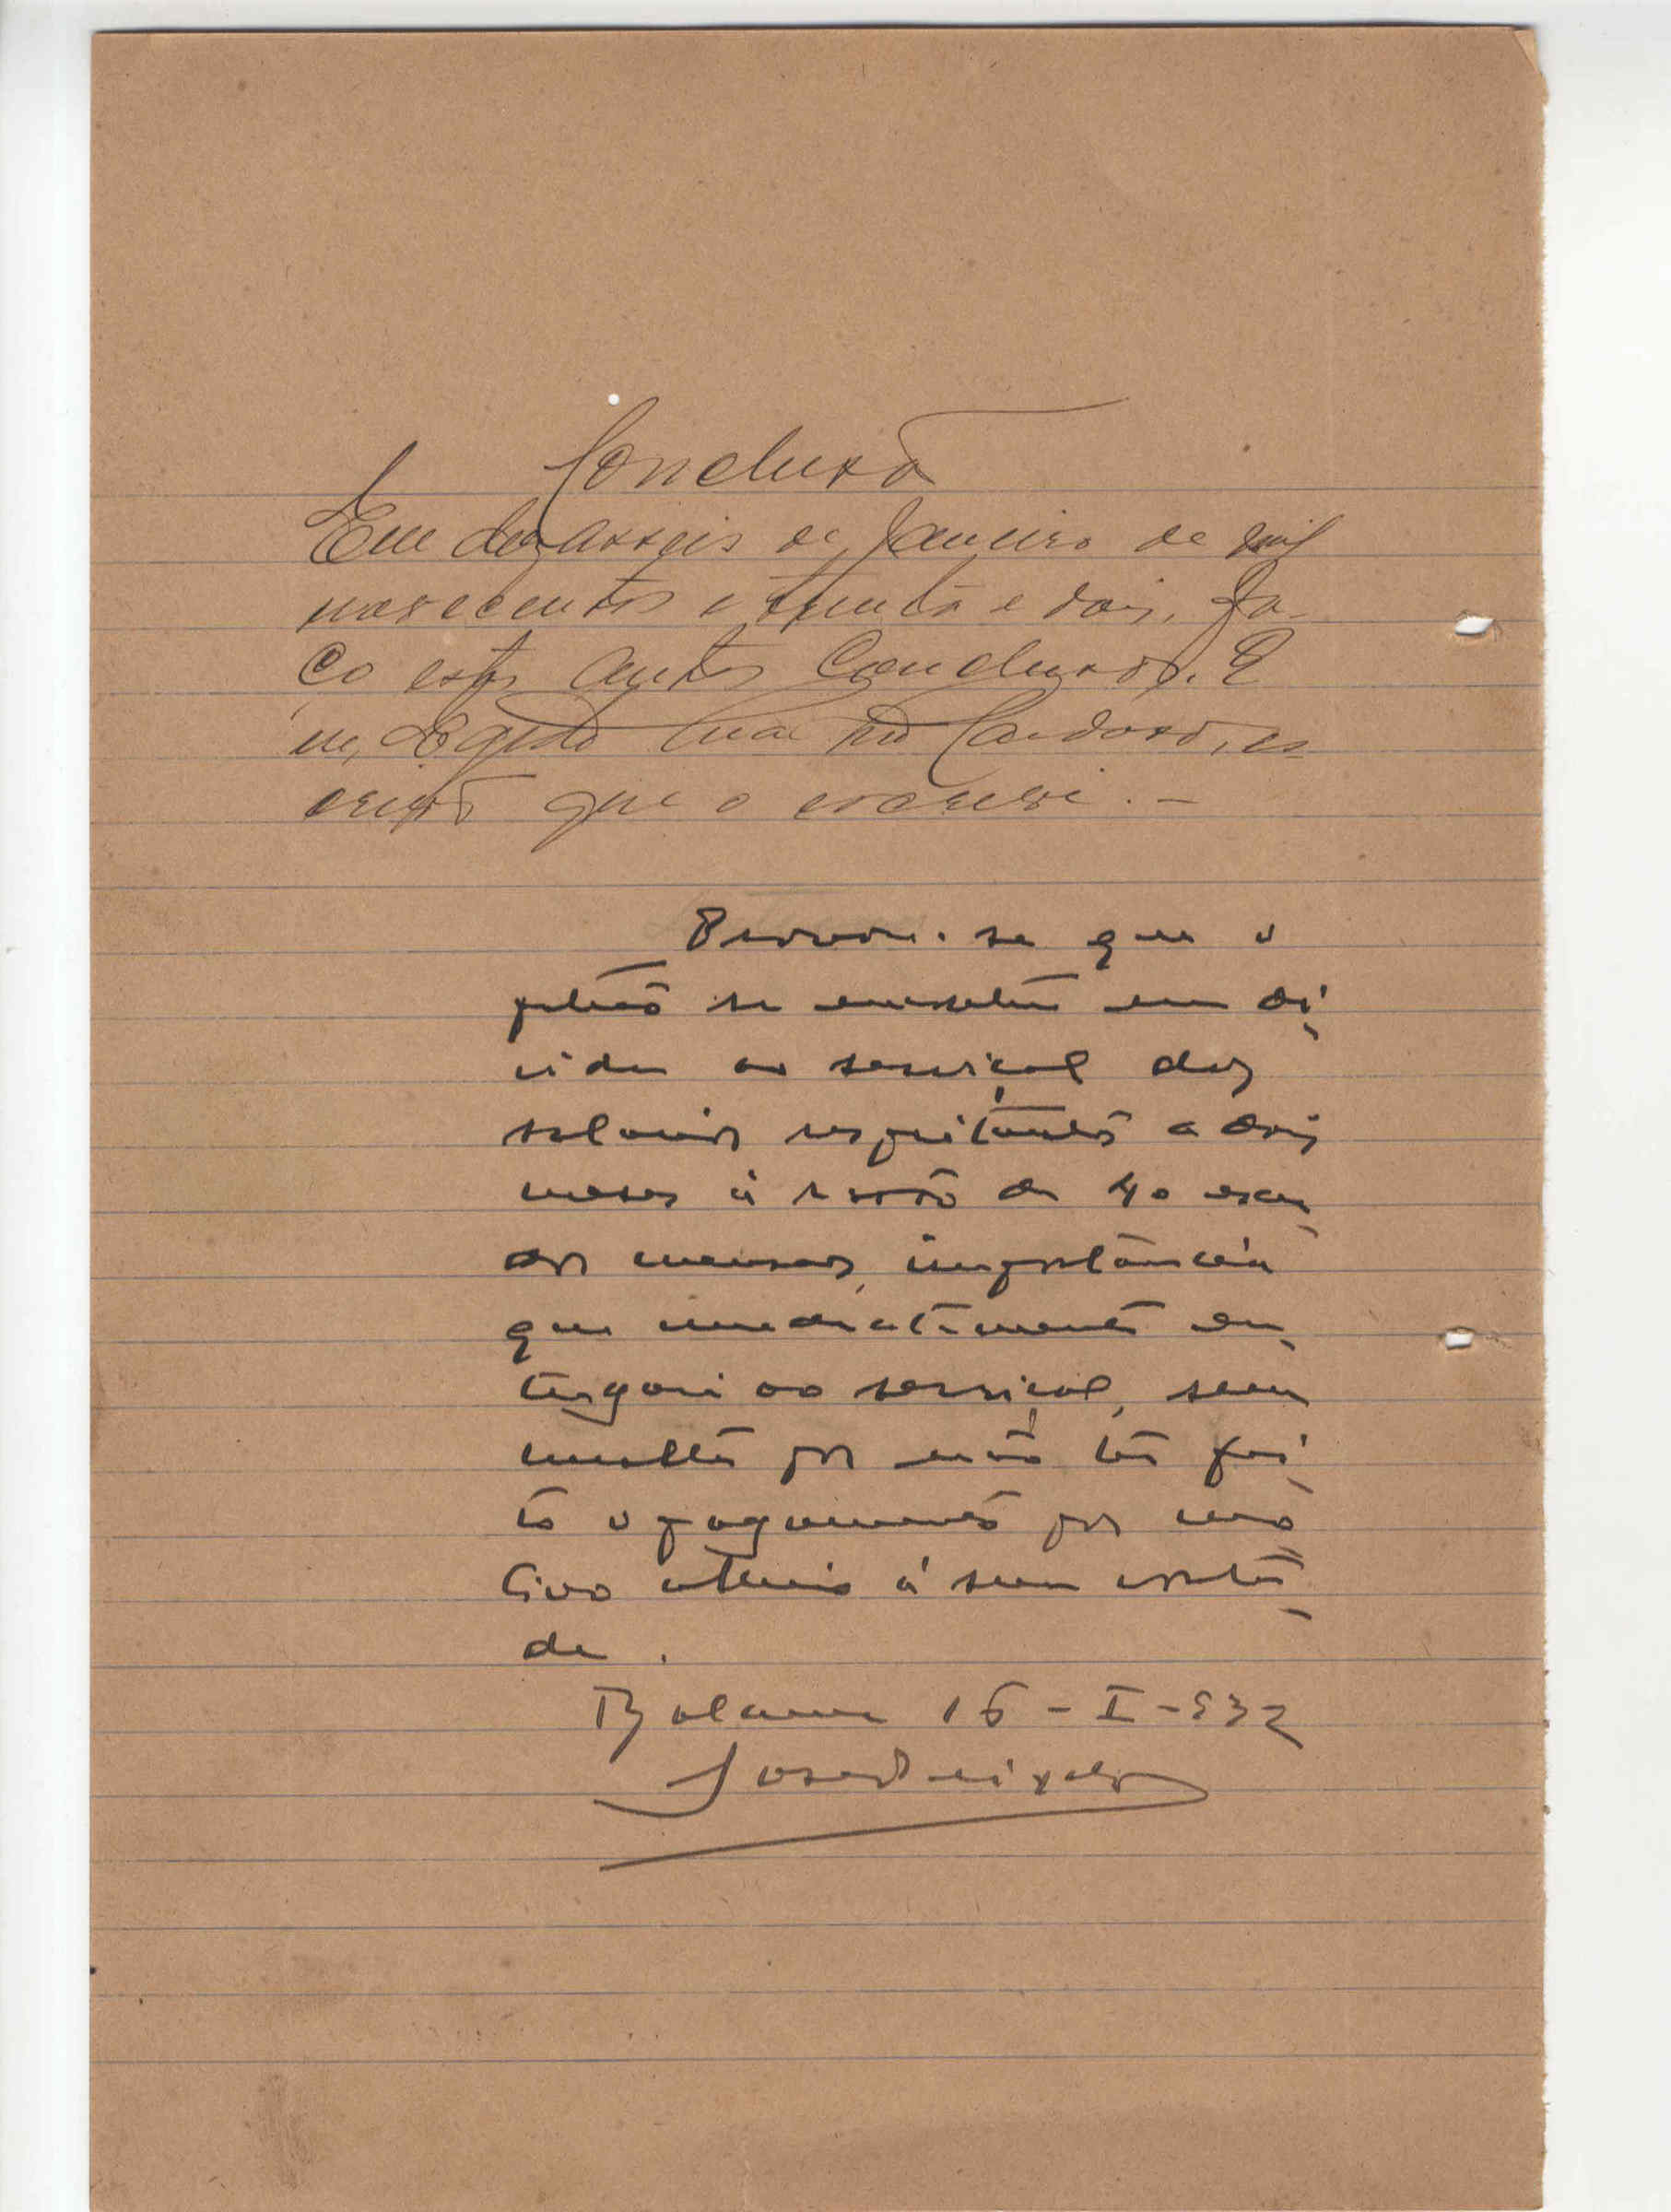 Conclusão
Em dezasseis de Janeiro de mil
novecentos e trinta e dois, fa-
ço estes autos conclusos. E
eu, Cardoso, es-
crivão que o escrevi. —
Provou-se que o
patrão se encontra em di-
vida ao serviçal dos
salarios respeitantes a dois
meses á razão de 40 escu-
dos mensaes, importância
que imediatamente en-
tregará ao serviçal, sem
multa por não ter fei-
to o pagamento por mo-
tivo alheio á sua vonta-
de.
Bolama 16-I-932
José Peixoto